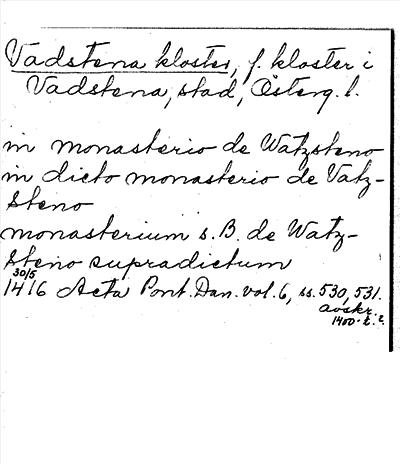 Vadstena kloster, f. kloster i
Vadstena, stad, Österg. l.
in monasterio de Watzsteno
in dicto monasterio de Vatz-
steno
monasterium s. B. de Watz-
steno supradictum
30/5
1416 Acta Pont. Dan. vol. 6, ss. 530, 531.
avskr.
1400-t.